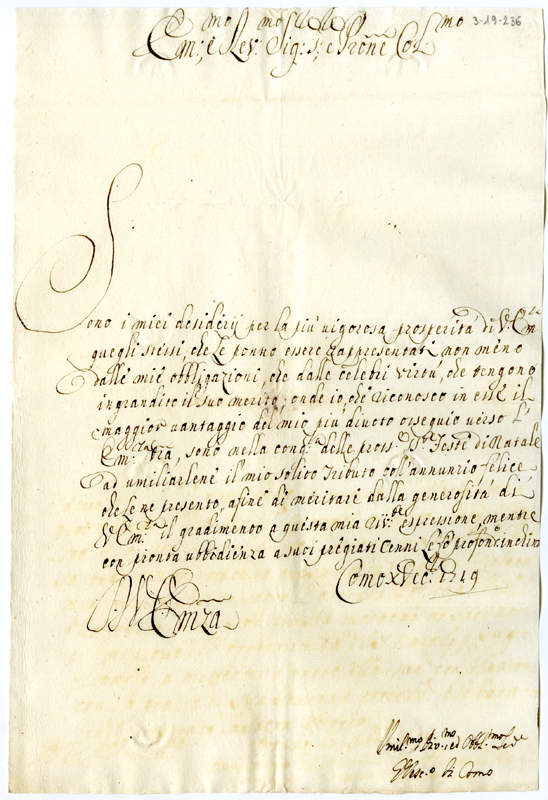 3-19-236
Em:mo e Rev:mo Sig:r, Sig:r e Prone Col:mo
Sono i miei desiderij per la più vigorosa prosperità di V: Em:za
quegli stessi, che le ponno essere rappresentati non meno
dalle mie obbligazioni, che dalle celebri virtù, che tengono
ingrandito il suo merito: onde io, che riconosco in esse il
maggior vantaggio del mio più divoto ossequio verso l'
Em:za Vra, sono nella cong:a delle pross:e S:te Feste di Natale
ad umiliarlene il mio solito tributo coll'annunzio felice
che le ne presento, afine di meritare dalla generosità di
V: Em:za il gradimento a questa mia riv:te espressione, mentre
con pronta ubbidienza a suoi pregiati cenni le fò profond:mo inchino
Como X Dec:e 1749
D. V. Emza
Umil:mo Div:mo ed Obbl:mo Ser:e
Vesc:o di Como